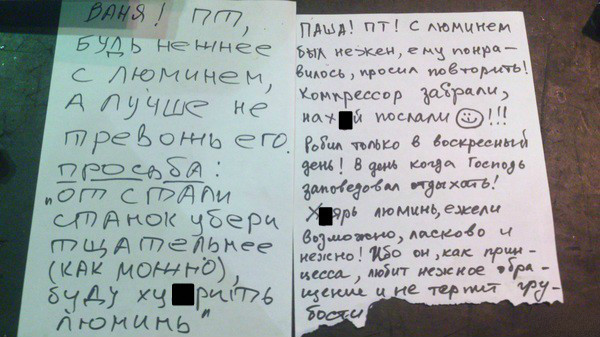 ВАНЯ! ПТ,
БУДЬ НЕЖНЕЕ
С ЛЮМИНЕМ,
А ЛУЧШЕ НЕ
ТРЕВОЖЬ ЕГО.
ПРОСЬБА:
"ОТ СТАЛИ
СТАНОК УБЕРИ
ТЩАТЕЛЬНЕЕ
(КАК МОЖНО),
БУДУ ХУ РИТЬ
ЛЮМИНЬ"
ПАША! ПТ! С ЛЮМИНЕМ
БЫЛ НЕЖЕН, ЕМУ ПОНРА-
ВИЛОСЬ, ПРОСИЛ ПОВТОРИТЬ!
КОМПРЕССОР ЗАБРАЛИ,
НАХ Й ПОСЛАЛИ ☺!!!
Робил только в воскресный
день! В день когда Господь
заповедовал отдыхать!
Х ярь люминь, ежели
возможно, ласково и
нежно! Ибо он, как прин-
цесса, любит нежное обра-
щение и не терпит гру-
бости